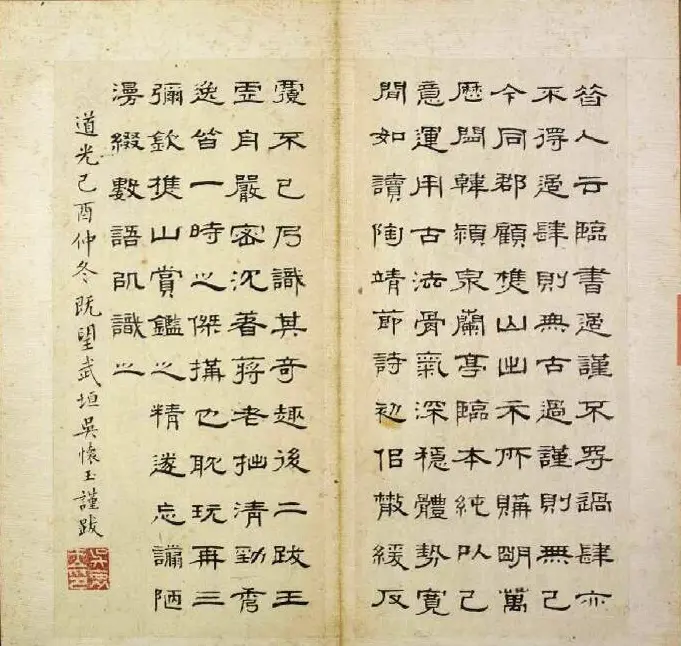 昔人云臨書過謹不㝵過肆亦
不得過肆則無古過謹則無己
今同郡顧樵山出示所購明萬
歷間韓潁泉蘭亭臨本純以己
意運用古法骨氣深穩體勢寬
閒如讀陶靖節詩初但散緩反
覆不已乃識其奇趣後二跋王
自嚴密沉著蔣老拙清勁秀
逸皆一時之傑搆也耽玩再三
彌欽樵山賞鑑之精遂忘譾陋
漫綴數語以識之
道光己酉仲冬既望武垣吳懷玉謹跋